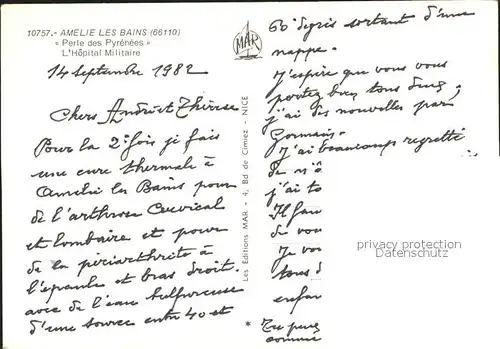 10757.- AMELIE LES BAINS (66110)
« Perle des Pyrénées »
L'Hôpital Militaire
14 Septembre 1982
Chers André et Thérèse
Pour la 2e fois je fais
une cure thermale à
Amélie les Bains pour
de l'arthrose Cervical
et lombaire et pour
de la périarthrite à
l'épaule et bras droit.
avec de l'eau sulfureuse
d'une source entre 40 et
MAR
Les Editions MAR - 4, Bd de Cimiez - NICE
60 degrés sortant d'une
nappe.
J'espère que vous vous
portez bien tous deux,
j'ai des nouvelles par
Germain.
J'ai beaucoup regretté
de n'ô
j'ai to
Il fau
de vou
Je vou
tous d
enfan
Tu peux
comme
privacy protection
Datenschutz